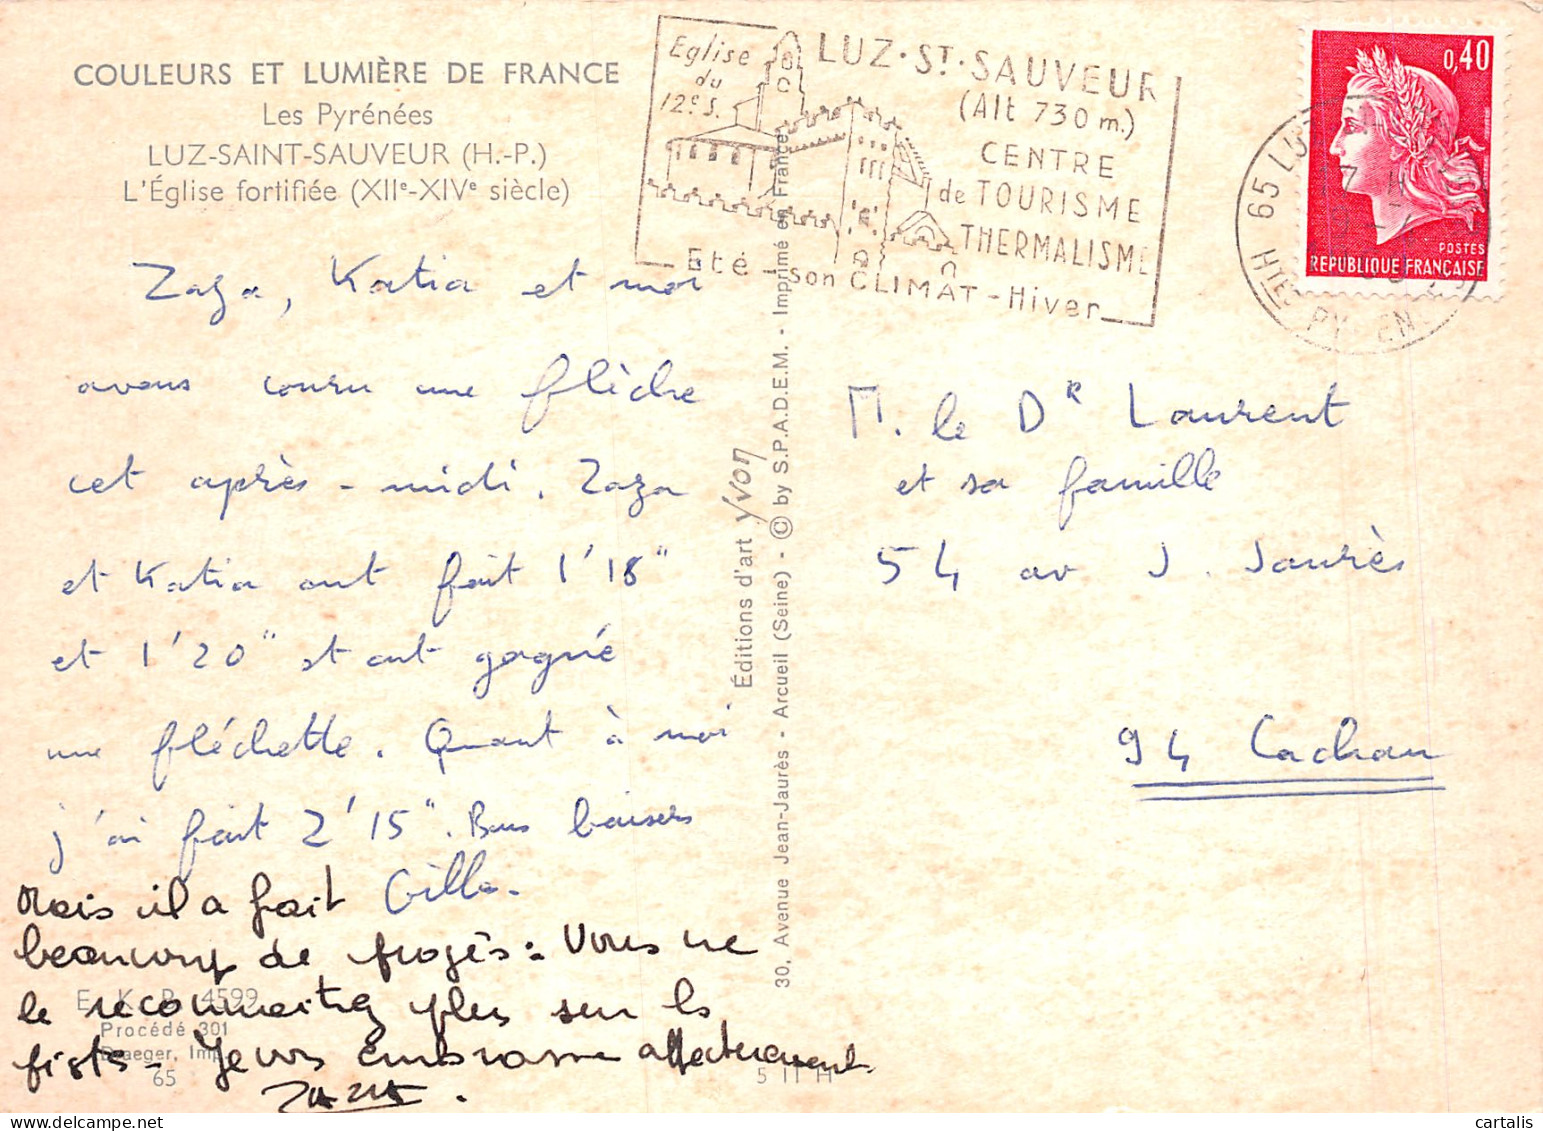 COULEURS ET LUMIÈRE DE FRANCE
Les Pyrénées
LUZ-SAINT-SAUVEUR (H.-P.)
L'Église fortifiée (XIIe-XIVe siècle)
Eglise
du
12e S.
LUZ·ST·SAUVEUR
(Alt 730 m.)
CENTRE
de TOURISME
THERMALISME
Eté - son CLIMAT - Hiver
0,40
POSTES
REPUBLIQUE FRANÇAISE
65
Htes PYRENEES
Zaza, Katia et moi
avons couru une flèche
cet après-midi. Zaza
et Katia ont fait 1'18"
et 1'20" et ont gagné
une fléchette. Quant à moi
j'ai fait 2'15". Bons baisers
Gilles.
Mais il a fait
beaucoup de progès. Vous ne
le reconnaitrez plus sur les
pistes - Je vous embrasse affectueusement
ZAZA.
E. K. B. 4599
Procédé 301
Draeger, Imp.
65
5 II H
Éditions d'art yvon
30, Avenue Jean-Jaurès - Arcueil (Seine) - © by S.P.A.D.E.M. - Imprimé en France
M. le Dr Laurent
et sa famille
54 av J. Jaurès
94 Cachan
cartalis